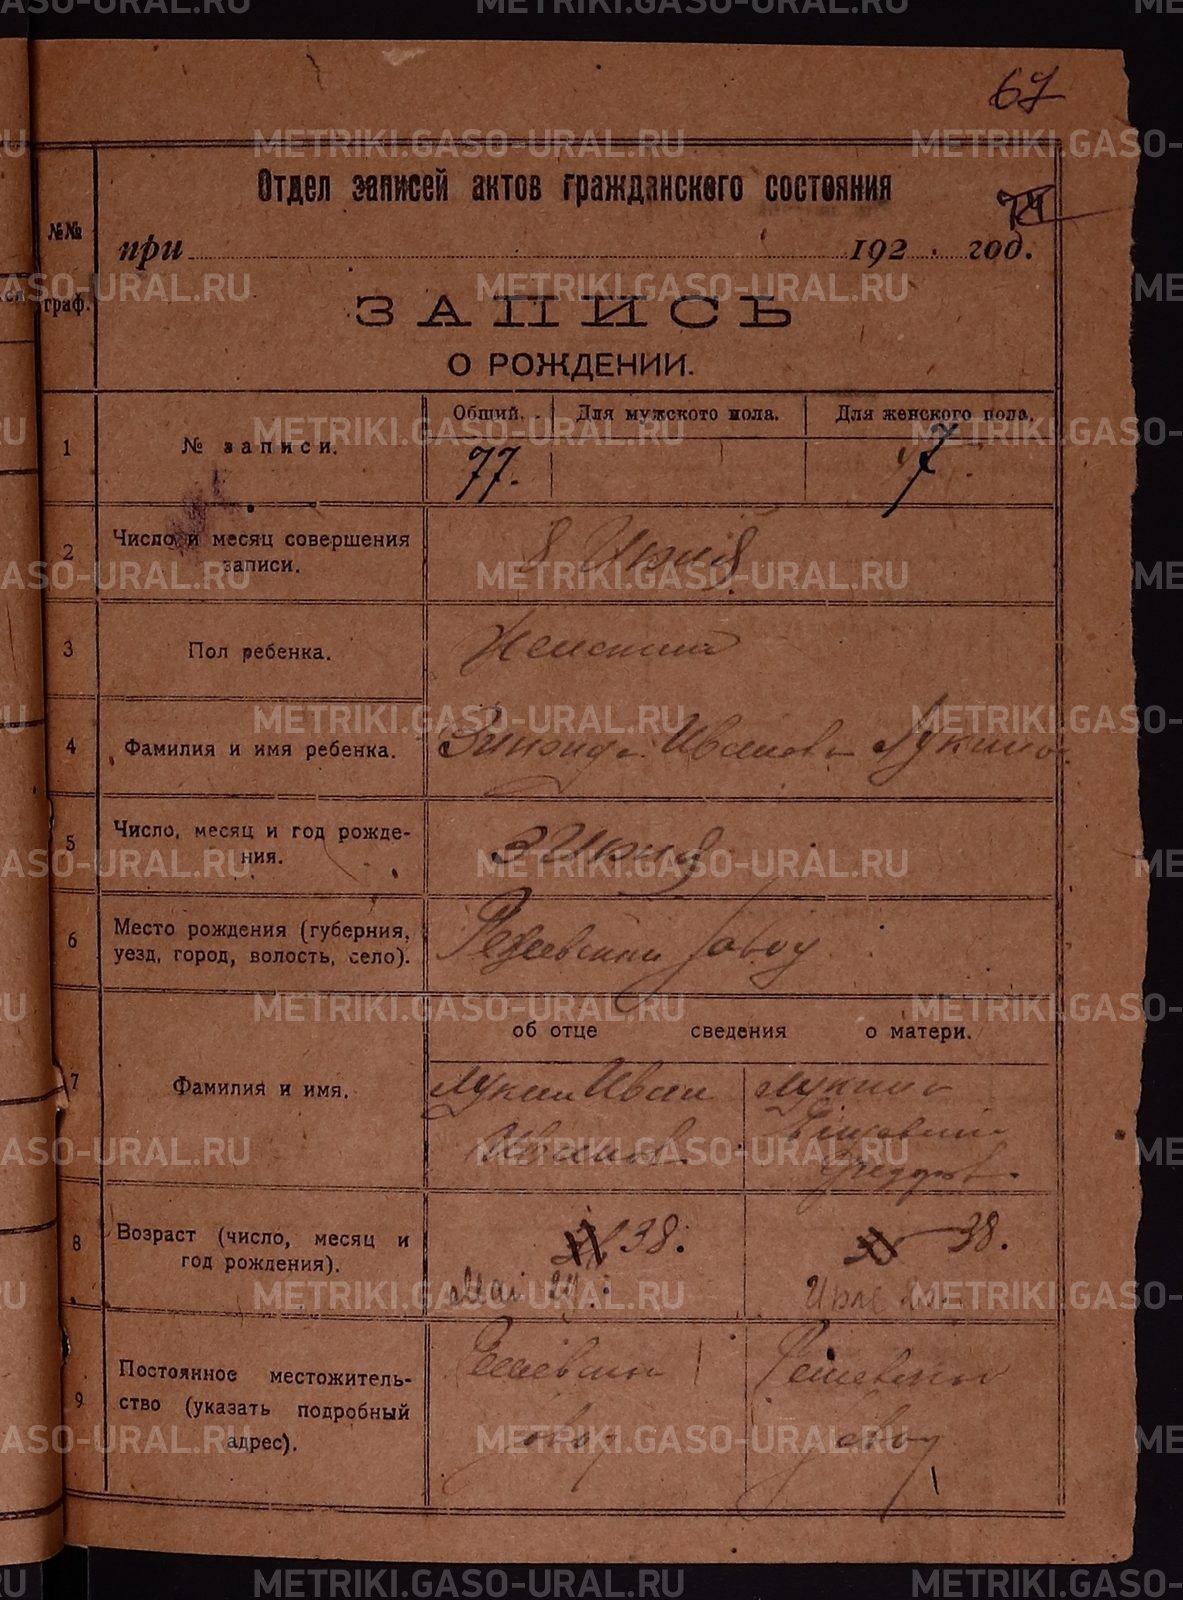 67
Отдел записей актов гражданского состояния
74
№№ граф.
при 192 год.
ЗАПИСЬ
О РОЖДЕНИИ.
Общий. Для мужского пола. Для женского пола.
1 № записи. 77. 7
2 Число и месяц совершения записи. 8 Июня
3 Пол ребенка. Женский
4 Фамилия и имя ребенка. Зинаида Иванова Лукина
5 Число, месяц и год рождения. 3 Июня
6 Место рождения (губерния, уезд, город, волость, село). Режевский завод
об отце сведения о матери.
7 Фамилия и имя. Лукин Иван
Иванов. Лукина
8 Возраст (число, месяц и год рождения). 38. 38.
Май 29
9 Постоянное местожительство (указать подробный адрес). Режевский Режевский
завод завод
METRIKI.GASO-URAL.RU